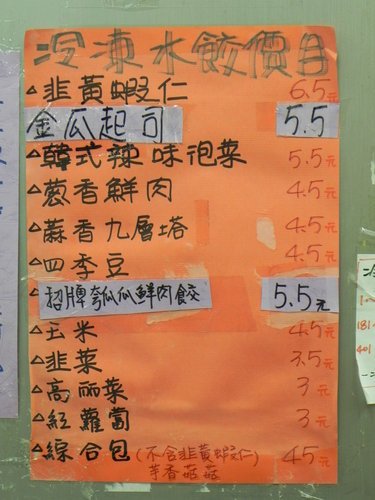 冷凍水餃價目
韭黃蝦仁 6.5元
金瓜起司 5.5
韓式辣味泡菜 5.5元
蔥香鮮肉 4.5元
蒜香九層塔 4.5元
四季豆 4.5元
招牌夸瓜瓜鮮肉餃 5.5元
玉米 4.5元
韭菜 3.5元
高丽菜 3元
紅蘿蔔 3元
綜合包(不含韭黃蝦仁) 45元
芋香菇菇
181
401